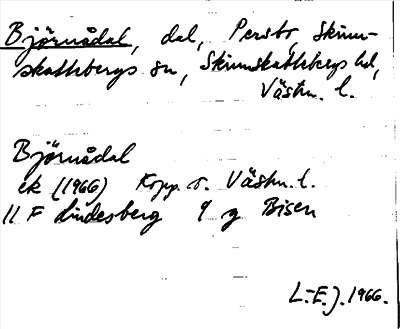 Björnådal, dal, Persbo, Skinn-
skattebergs sn, Skinnskattebergs hd,
Västm. l.
Björnådal
ek (1966) Kopp. o. Västm. l.
11 F Lindesberg 9 g Bisen
L-E. J. 1966.